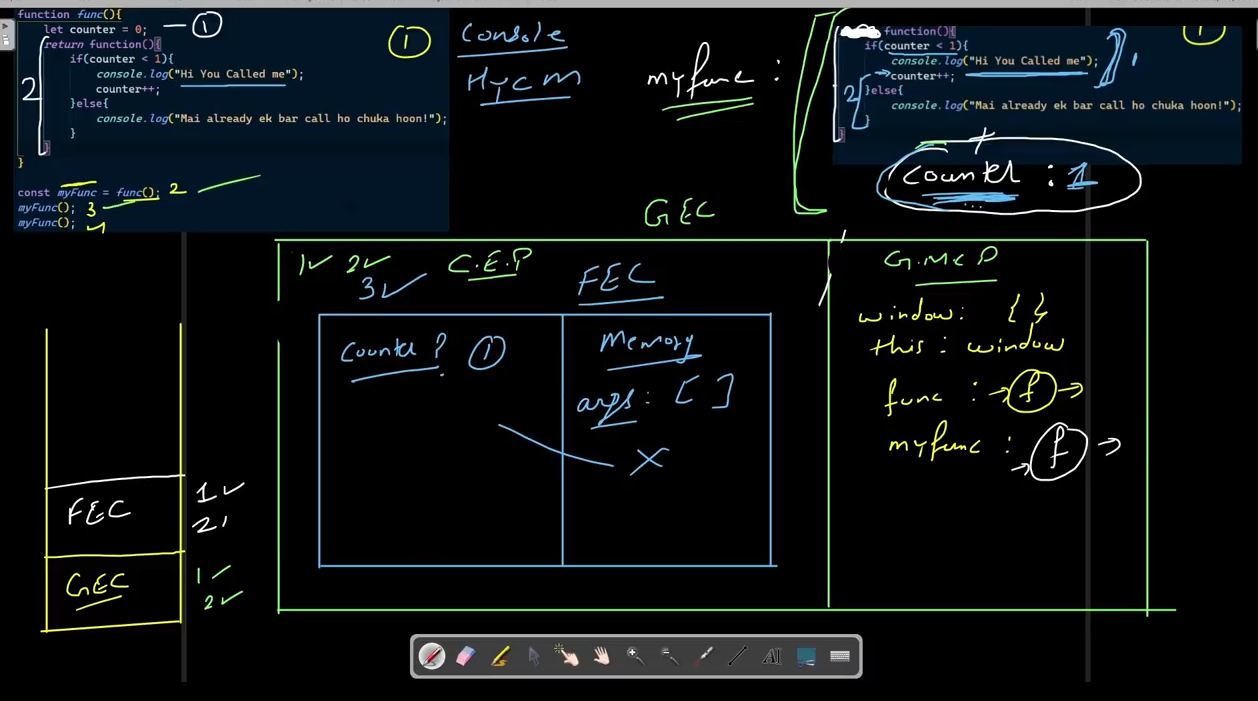 function func(){
let counter = 0; — 1
return function(){
if(counter < 1){
console.log("Hi You Called me");
counter++;
}else{
console.log("Mai already ek bar call ho chuka hoon!");
}
}
}
2
1
const myFunc = func(); 2
myFunc(); 3
myFunc(); 4
Console
HYCM
myfunc :
function(){
if(counter < 1){
console.log("Hi You Called me");
counter++;
}else{
console.log("Mai already ek bar call ho chuka hoon!");
}
}
1
2
1
+
counter : 1
...
GEC
1✓ 2✓ C.E.P
3✓
FEC
Counter? 1
Memory
args : [ ]
X
window : { }
this : window
func : → f →
myfunc : → f →
FEC 1✓
2
GEC 1✓
2✓
AI